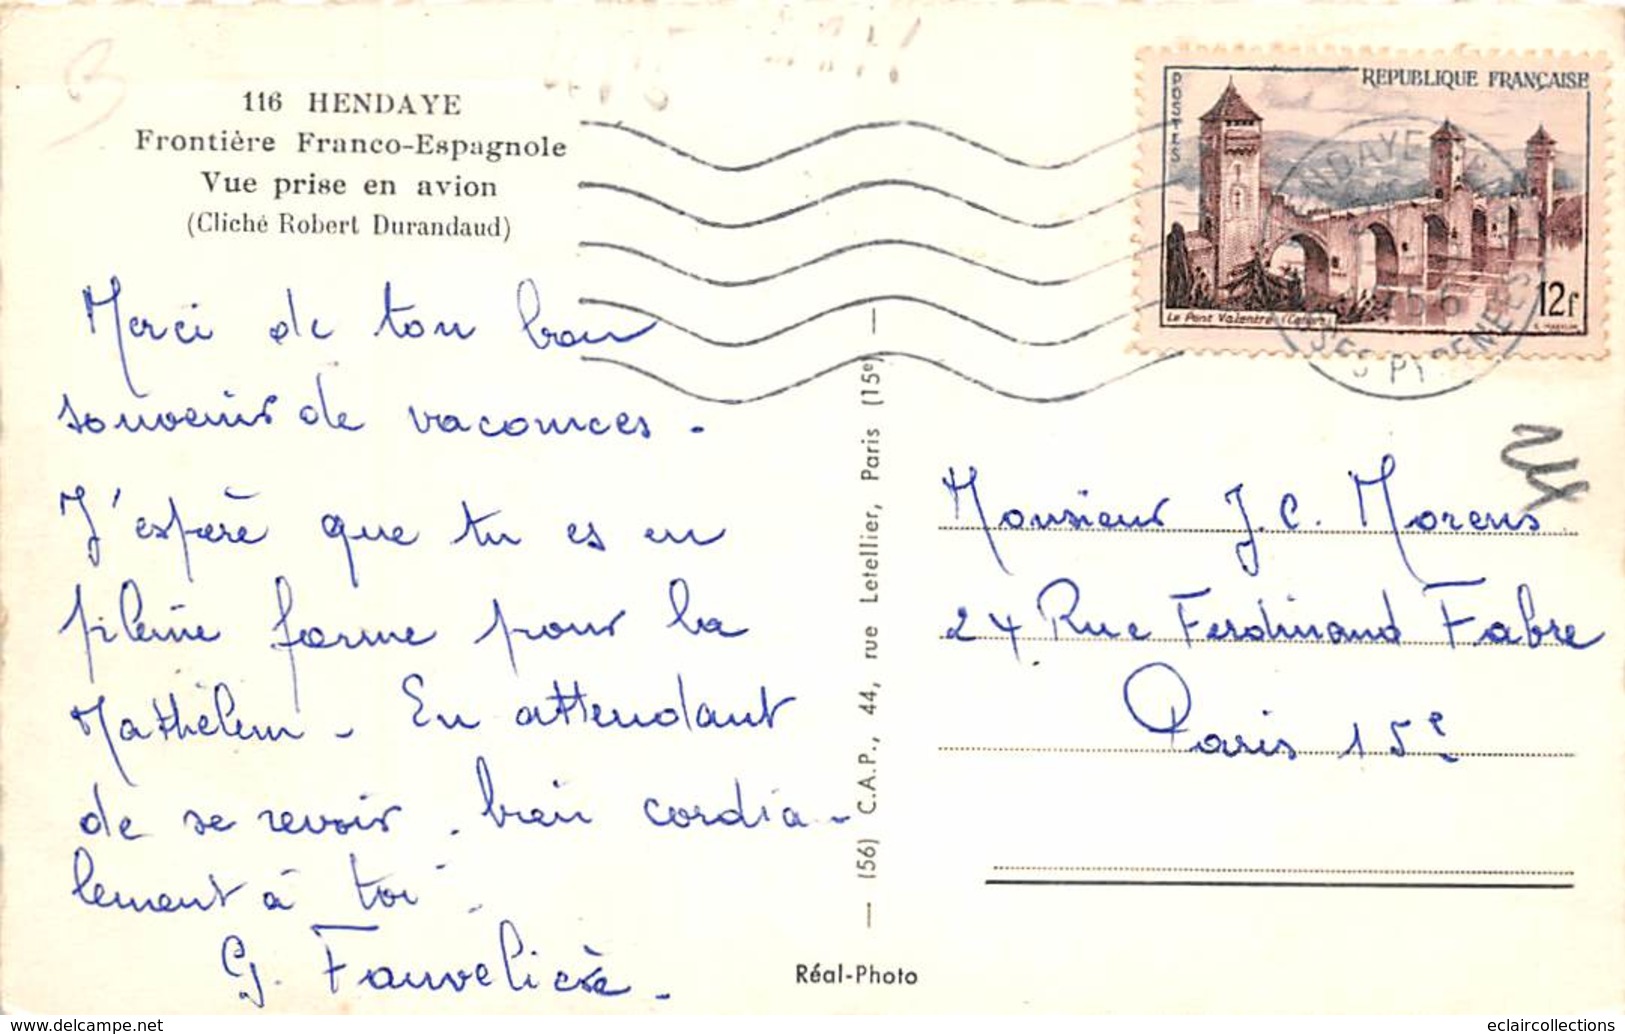 116 HENDAYE
Frontière Franco-Espagnole
Vue prise en avion
(Cliché Robert Durandaud)
Merci de ton bon
souvenir de vacances.
J'espère que tu es en
pleine forme pour la
Mathélem. En attendant
de se revoir. bien cordia-
lement à toi
G. Fauvelière.
(56) C.A.P., 44, rue Letellier, Paris (15e)
Réal-Photo
POSTES
REPUBLIQUE FRANÇAISE
Le Pont Valentré (Cahors)
12f
Monsieur J.C. Morens
24 Rue Ferdinand Fabre
Paris 15e
eclaircollections
www.delcampe.net